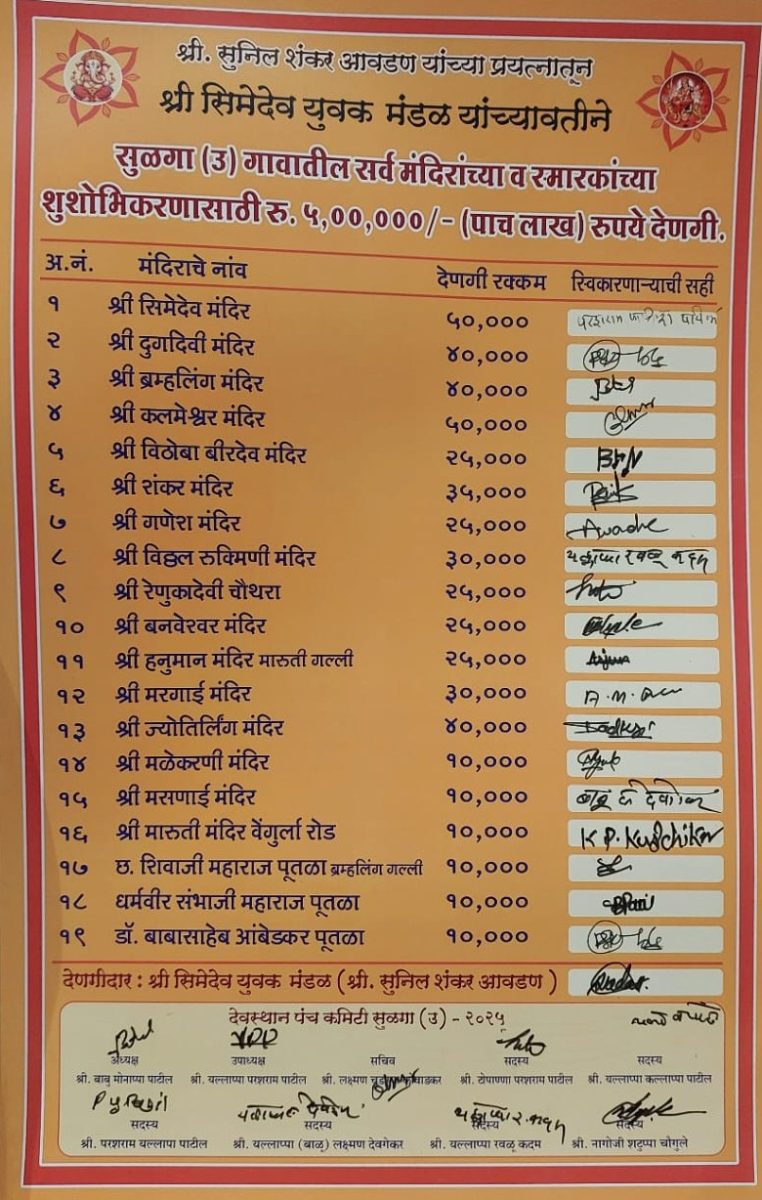 श्री. सुनिल शंकर आवडण यांच्या प्रयत्नातून
श्री सिमेदेव युवक मंडळ यांच्यावतीने
सुळगा (उ) गावातील सर्व मंदिरांच्या व स्मारकांच्या
शुशोभिकरणासाठी रु. ५,००,०००/- (पाच लाख) रुपये देणगी.
अ.नं. मंदिराचे नांव देणगी रक्कम स्विकारणाऱ्याची सही
१ श्री सिमेदेव मंदिर ५०,०००
२ श्री दुर्गादेवी मंदिर ४०,०००
३ श्री ब्रम्हलिंग मंदिर ४०,०००
४ श्री कलमेश्वर मंदिर ५०,०००
५ श्री विठोबा बीरदेव मंदिर २५,०००
६ श्री शंकर मंदिर ३५,०००
७ श्री गणेश मंदिर २५,००० Awadhe
८ श्री विठ्ठल रुक्मिणी मंदिर ३०,००० यल्लाप्पा रवळू कदम
९ श्री रेणुकादेवी चौथरा २५,०००
१० श्री बनवेश्वर मंदिर २५,०००
११ श्री हनुमान मंदिर मारुती गल्ली २५,००० Arjun
१२ श्री मरगाई मंदिर ३०,००० A.M.
१३ श्री ज्योतिर्लिंग मंदिर ४०,०००
१४ श्री मळेकरणी मंदिर १०,०००
१५ श्री मसणाई मंदिर १०,०००
१६ श्री मारुती मंदिर वेंगुर्ला रोड १०,००० K P. Kudchikar
१७ छ. शिवाजी महाराज पूतळा ब्रम्हलिंग गल्ली १०,०००
१८ धर्मवीर संभाजी महाराज पूतळा १०,०००
१९ डॉ. बाबासाहेब आंबेडकर पूतळा १०,०००
देणगीदार : श्री सिमेदेव युवक मंडळ (श्री. सुनिल शंकर आवडण )
देवस्थान पंच कमिटी सुळगा (उ) - २०२५
अध्यक्ष उपाध्यक्ष सचिव सदस्य सदस्य
श्री. बाबु मोनाप्पा पाटील श्री. यल्लाप्पा परशराम पाटील श्री. लक्ष्मण श्री. टोपाण्णा परशराम पाटील श्री. यल्लाप्पा कल्लाप्पा पाटील
P Y Patil यल्लाप्पा र. कदम
सदस्य सदस्य सदस्य सदस्य
श्री. परशराम यल्लापा पाटील श्री. यल्लाप्पा (बाळू) लक्ष्मण देवगेकर श्री. यल्लाप्पा रवळू कदम श्री. नागोजी शटुप्पा चौगुले